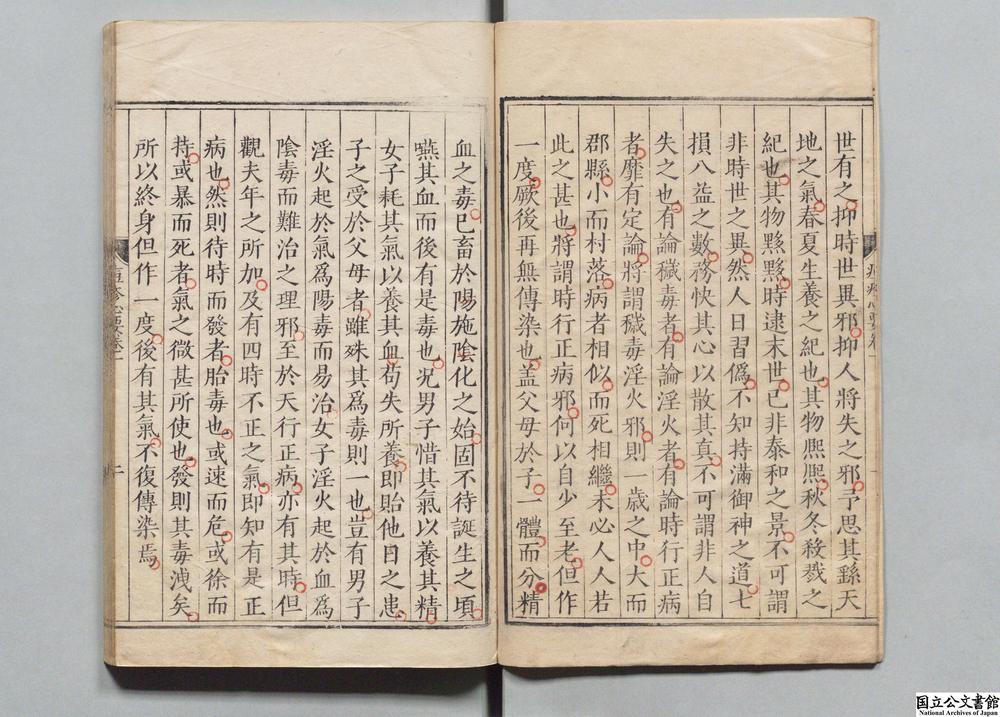 世有之抑時世異邪抑人將失之邪予思其繇天
地之氣春夏生養之紀也其物熈熈秋冬殺戮之
紀也其物黟黟時逮末世已非泰和之景不可謂
非時世之異然人日習僞不知持滿御神之道七
損八益之數務快其心以散其真不可謂非人自
失之也有論穢毒者有論淫火者有論時行正病
者靡有定論將謂穢毒淫火邪則一歲之中大而
郡縣小而村落病者相似而死相繼未必人人若
此之甚也將謂時行正病邪何以自少至老但作
一度厥後再無傳染也盖父母於子一體而分精
血之毒已畜於陽施陰化之始固不待誕生之頃
嚥其血而後有是毒也况男子惜其氣以養其精
女子耗其氣以養其血苟失所養即貽他日之患
子之受於父母者雖殊其爲毒則一也豈有男子
淫火起於氣爲陽毒而易治女子淫火起於血爲
陰毒而難治之理邪至於天行正病亦有其時但
觀夫年之所加及有四時不正之氣即知有是正
病也然則待時而發者胎毒也或速而危或徐而
持或暴而死者氣之微甚所使也發則其毒洩矣
所以終身但作一度後有其氣不復傳染焉
國立公文書館
National Archives of Japan